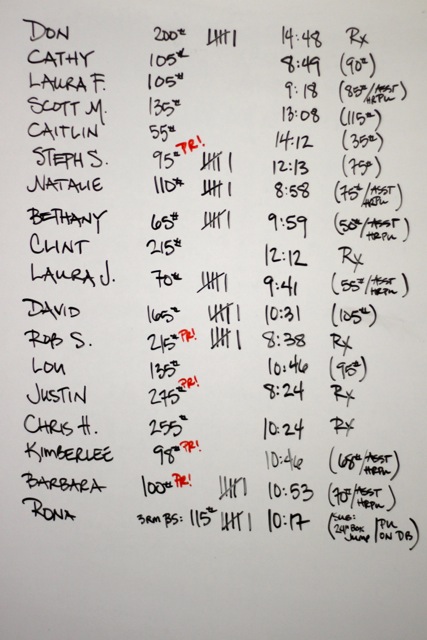 DON 200# 𝍸 I 14:48 Rx
CATHY 105# 8:49 (90#)
LAURA F. 105# 9:18 (85#/ASST HRPU)
SCOTT M. 135# 13:08 (115#)
CAITLIN 55# 14:12 (35#)
STEPH S. 95# PR! 𝍸 I 12:13 (75#)
NATALIE 110# 𝍸 I 8:58 (75#/ASST HRPU)
BETHANY 65# 𝍸 I 9:59 (50#/ASST HRPU)
CLINT 215# 12:12 Rx
LAURA J. 70# 𝍸 I 9:41 (55#/ASST HRPU)
DAVID 165# 𝍸 I 10:31 (105#)
ROB S. 215# PR! 𝍸 I 8:38 Rx
LOU 135# 10:46 (95#)
JUSTIN 275# PR! 8:24 Rx
CHRIS H. 255# 10:24 Rx
KIMBERLEE 98# PR! 10:46 (68#/ASST HRPU)
BARBARA 100# PR! 𝍸 I 10:53 (70#/ASST HRPU)
RONA 3RM BS: 115# 𝍸 I 10:17 (SUB: 24" BOX JUMP/PU ON DB)